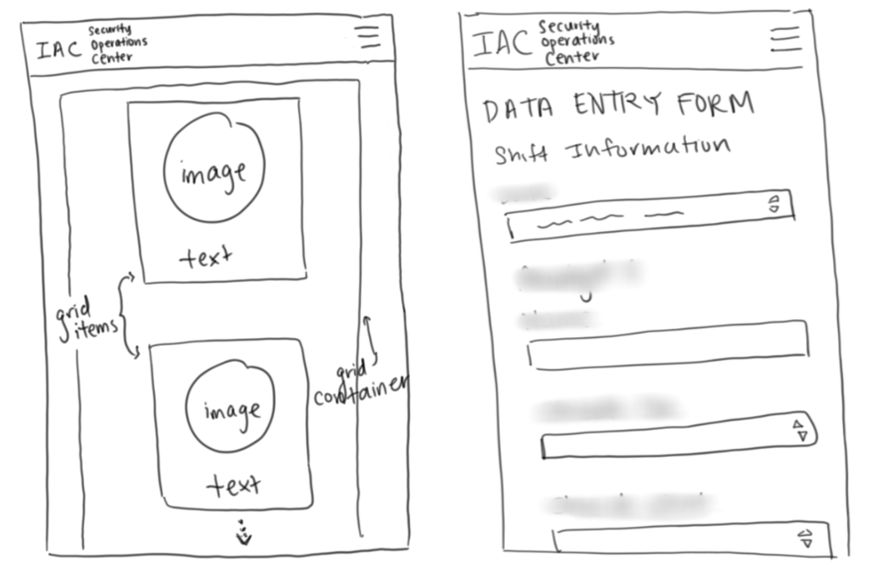 IAC Security
Operations
Center
image
text
grid
items
grid
container
image
text
IAC Security
Operations
Center
DATA ENTRY FORM
Shift Information